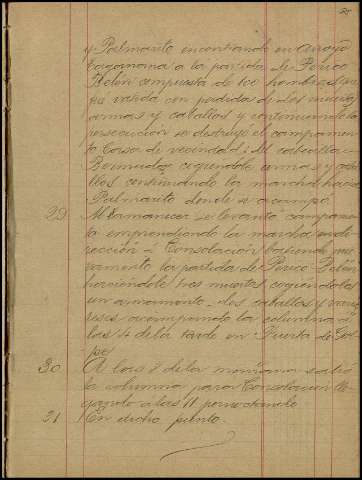 y Palmarito encontrando en Arroyo
a la partida de Perico
Delén compuesta de 100 hombres
batida con perdidas de dos muertos
armas y caballos y continuando la
persecución se destruyó el campamen-
to Casa de vecindad; del cabecilla
Bermudez cogiendole armas y caba-
llos continuando la marcha hacia
Palmarito donde se acampó
29 Al amanecer se levantó campamen-
to emprendiendo la marcha en di-
rección á Consolación batiendo nue-
vamente la partida de Perico Delén
haciéndole tres muertos cogiendoles
un armamento, dos caballos y
acampando la columna á
las 4 de la tarde en Puerta de Gol-
pe
30 A las 7 de la mañana salió
la columna para Consolacion lle-
gando a las 11 pernoctando
31 En dicho punto.